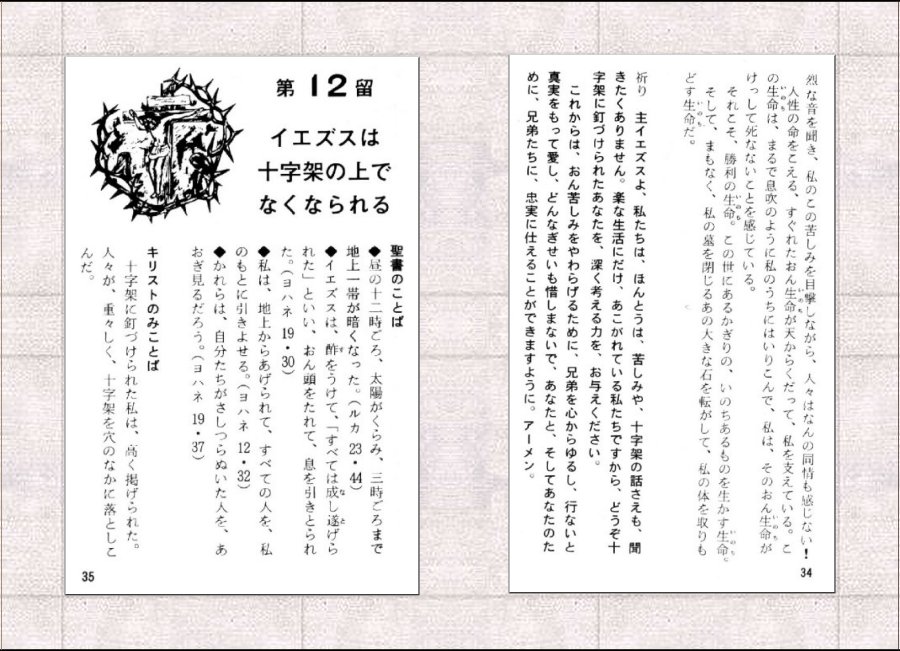 烈な音を聞き、私のこの苦しみを目撃しながら、人々はなんの同情も感じない!
人性の命をこえる、すぐれたおん生命が天からくだって、私を支えている。こ
の生命は、まるで息吹のように私のうちにはいりこんで、私は、そのおん生命が
けっして死なないことを感じている。
それこそ、勝利の生命。この世にあるかぎりの、いのちあるものを生かす生命。
そして、まもなく、私の墓を閉じるあの大きな石を転がして、私の体を取りも
どす生命だ。
祈り 主イエズスよ、私たちは、ほんとうは、苦しみや、十字架の話さえも、聞
きたくありません。楽な生活にだけ、あこがれている私たちですから、どうぞ十
字架に釘づけられたあなたを、深く考える力を、お与えください。
これからは、おん苦しみをやわらげるために、兄弟を心からゆるし、行ないと
真実をもって愛し、どんなぎせいも惜しまないで、あなたと、そしてあなたのた
めに、兄弟たちに、忠実に仕えることができますように。アーメン。
34
第12留
イエズスは
十字架の上で
なくなられる
聖書のことば
◆昼の十二時ごろ、太陽がくらみ、三時ごろまで
地上一帯が暗くなった。(ルカ 23・44)
◆イエズスは、酢をうけて、「すべては成し遂げら
れた」といい、おん頭をたれて、息を引きとられ
た。(ヨハネ 19・30)
◆私は、地上からあげられて、すべての人を、私
のもとに引きよせる。(ヨハネ 12・32)
◆かれらは、自分たちがさしつらぬいた人を、あ
おぎ見るだろう。(ヨハネ 19・37)
キリストのみことば
十字架に釘づけられた私は、高く掲げられた。
人々が、重々しく、十字架を穴のなかに落としこ
んだ。
35